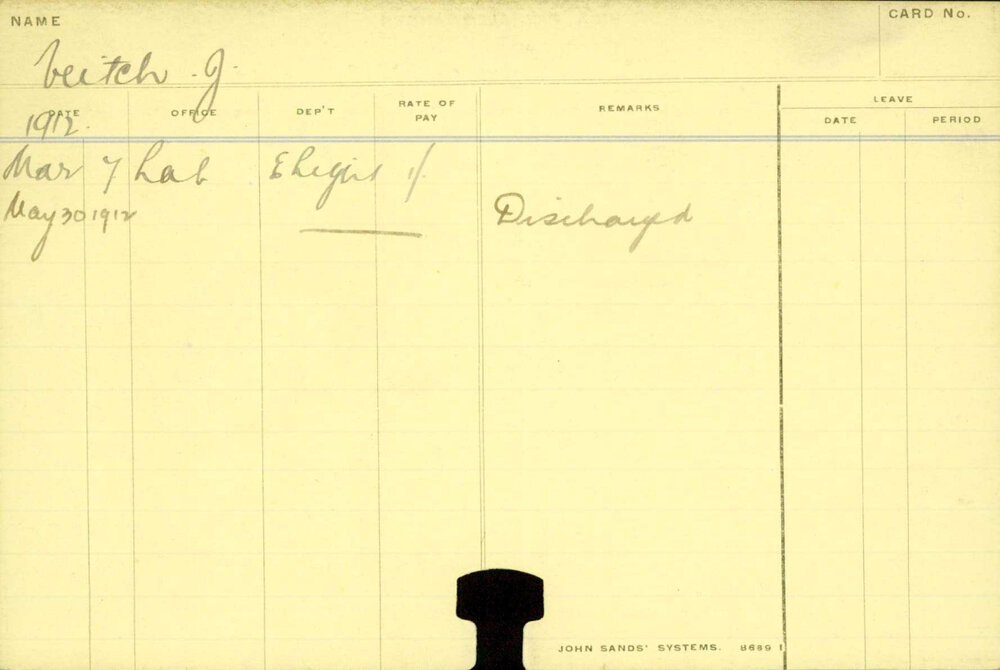 NAME
CARD No.
Veitch J.
DATE OFFICE DEP'T RATE OF PAY REMARKS LEAVE
DATE PERIOD
1912.
Mar 7 Lab 1/.
May 30 1912 Discharged
JOHN SANDS' SYSTEMS. 8689